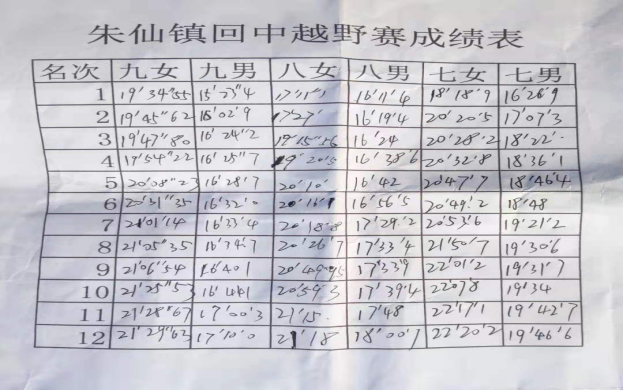 朱仙镇回中越野赛成绩表
名次 九女 九男 八女 八男 七女 七男
1 19'34"55 15'23"4 17'11"1 16'11"4 18'18"9 16'26"9
2 19'45"62 16'02"9 17'27' 16'19"4 20'20"5 17'07"3
3 19'47"80 16'24"2 19'15"56 16'24 20'28"2 18'22"
4 19'54"22 16'25"7 19'20"5 16'38"6 20'32"8 18'36"1
5 20'08"23 16'28"7 20'10' 16'42 20'47"7 18'46"4
6 20'31"35 16'32"0 20'16"1 16'56"5 20'49"2 18'48
7 21'01"14 16'33"4 20'18"8 17'29"2 20'53"6 19'21"2
8 21'05"35 16'34"7 20'26"7 17'33"4 21'50"7 19'30"6
9 21'06"54 16'40"1 20'49"95 17'33"9 22'01"2 19'31"7
10 21'25"53 16'44"1 20'59"3 17'39"4 22'07"8 19'34
11 21'28"67 17'00"3 21'15" 17'48 22'17"1 19'42"7
12 21'29"62 17'10"0 21'18 18'00"7 22'20"2 19'46"6